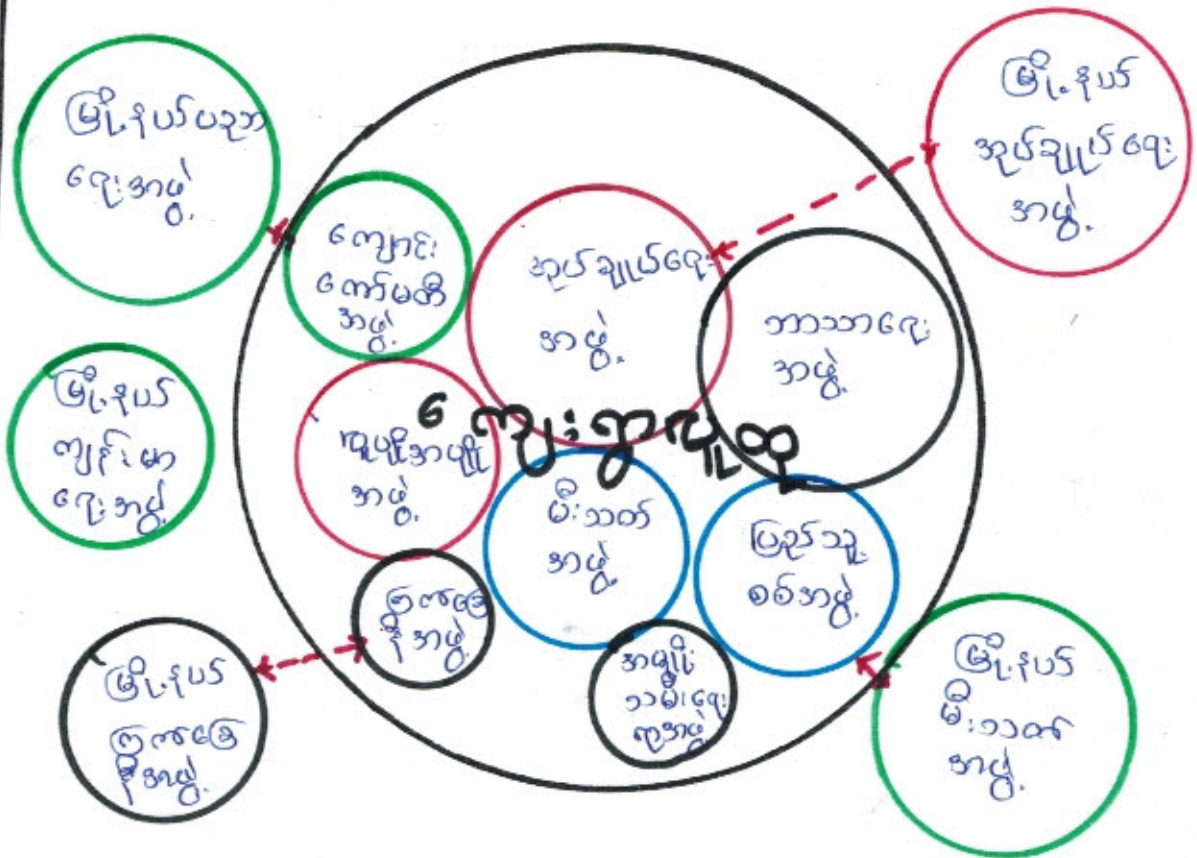 မြို့နယ်ပညာ
ရေးအဖွဲ့
မြို့နယ်
အုပ်ချုပ်ရေး
အဖွဲ့
ကျောင်း
ကော်မတီ
အဖွဲ့
အုပ်ချုပ်ရေး
အဖွဲ့
ဘာသာရေး
အဖွဲ့
မြို့နယ်
ကျန်းမာ
ရေးအဖွဲ့
ကျေးရွာလူထု
အဖွဲ့
မီးသတ်
အဖွဲ့
ပြည်သူ့
စစ်အဖွဲ့
ကြက်ခြေ
နီအဖွဲ့
အမျိုး
သမီးရေး
ရာအဖွဲ့
မြို့နယ်
ကြက်ခြေ
နီအဖွဲ့
မြို့နယ်
မီးသတ်
အဖွဲ့